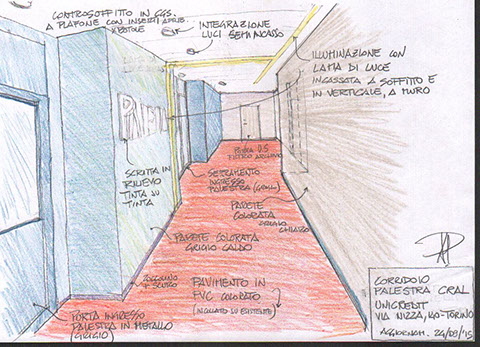 CONTROSOFFITTO IN CGS.
A PLAFONE CON INSERTI
INTEGRAZIONE
LUCI SEMINCASSO
ILLUMINAZIONE CON
LAMA DI LUCE
INCASSATA A SOFFITTO E
IN VERTICALE, A MURO
SCRITTA IN
RILIEVO
TINTA SU
TINTA
SERRAMENTO
INGRESSO
PALESTRA
PARETE
COLORATA
GRIGIO
CHIARO
PARETE COLORATA
GRIGIO CALDO
ZOCCOLINO
PAVIMENTO IN
PVC COLORATO
(INCOLLATO SU ESISTENTE)
PORTA INGRESSO
PALESTRA IN METALLO
(GRIGIO)
CORRIDOIO
PALESTRA CRAL
UNICREDIT
VIA NIZZA, TORINO
AGGIORNAM.